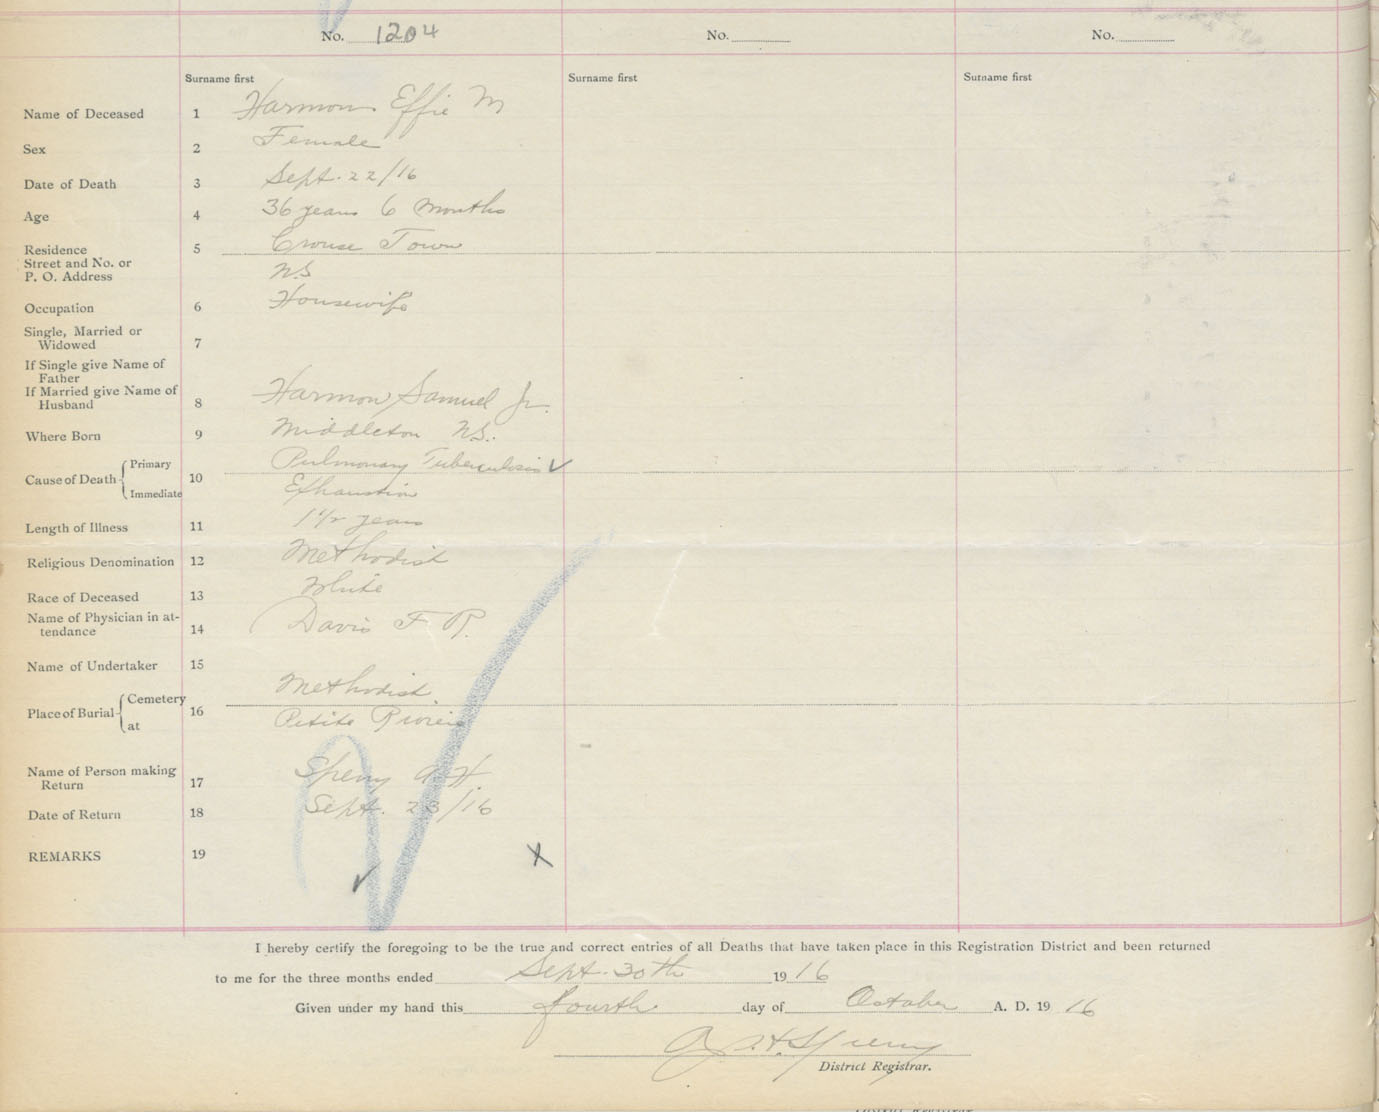 No. 1204 No. No.
Surname first Surname first Surname first
Name of Deceased 1 Harmon Effie M
Sex 2 Female
Date of Death 3 Sept. 22/16
Age 4 36 years 6 Months
Residence 5 Crouse Town
Street and No. or
P. O. Address N.S
Occupation 6 Housewife
Single, Married or
Widowed 7
If Single give Name of
Father
If Married give Name of
Husband 8 Harmon Samuel Jr.
Where Born 9 Middleton N.S.
Cause of Death Primary 10 Pulmonary Tuberculosis ✓
Immediate Exhaustion
Length of Illness 11 1 1/2 years
Religious Denomination 12 Methodist
Race of Deceased 13 White
Name of Physician in at-
tendance 14 Davis F. R.
Name of Undertaker 15
Place of Burial Cemetery 16 Methodist
at Petite Riviere
Name of Person making
Return 17 Sperry A. H.
Date of Return 18 Sept. 23/16
REMARKS 19
I hereby certify the foregoing to be the true and correct entries of all Deaths that have taken place in this Registration District and been returned
to me for the three months ended Sept. 30th 19 16
Given under my hand this fourth day of October A. D. 19 16
Sperry
District Registrar.